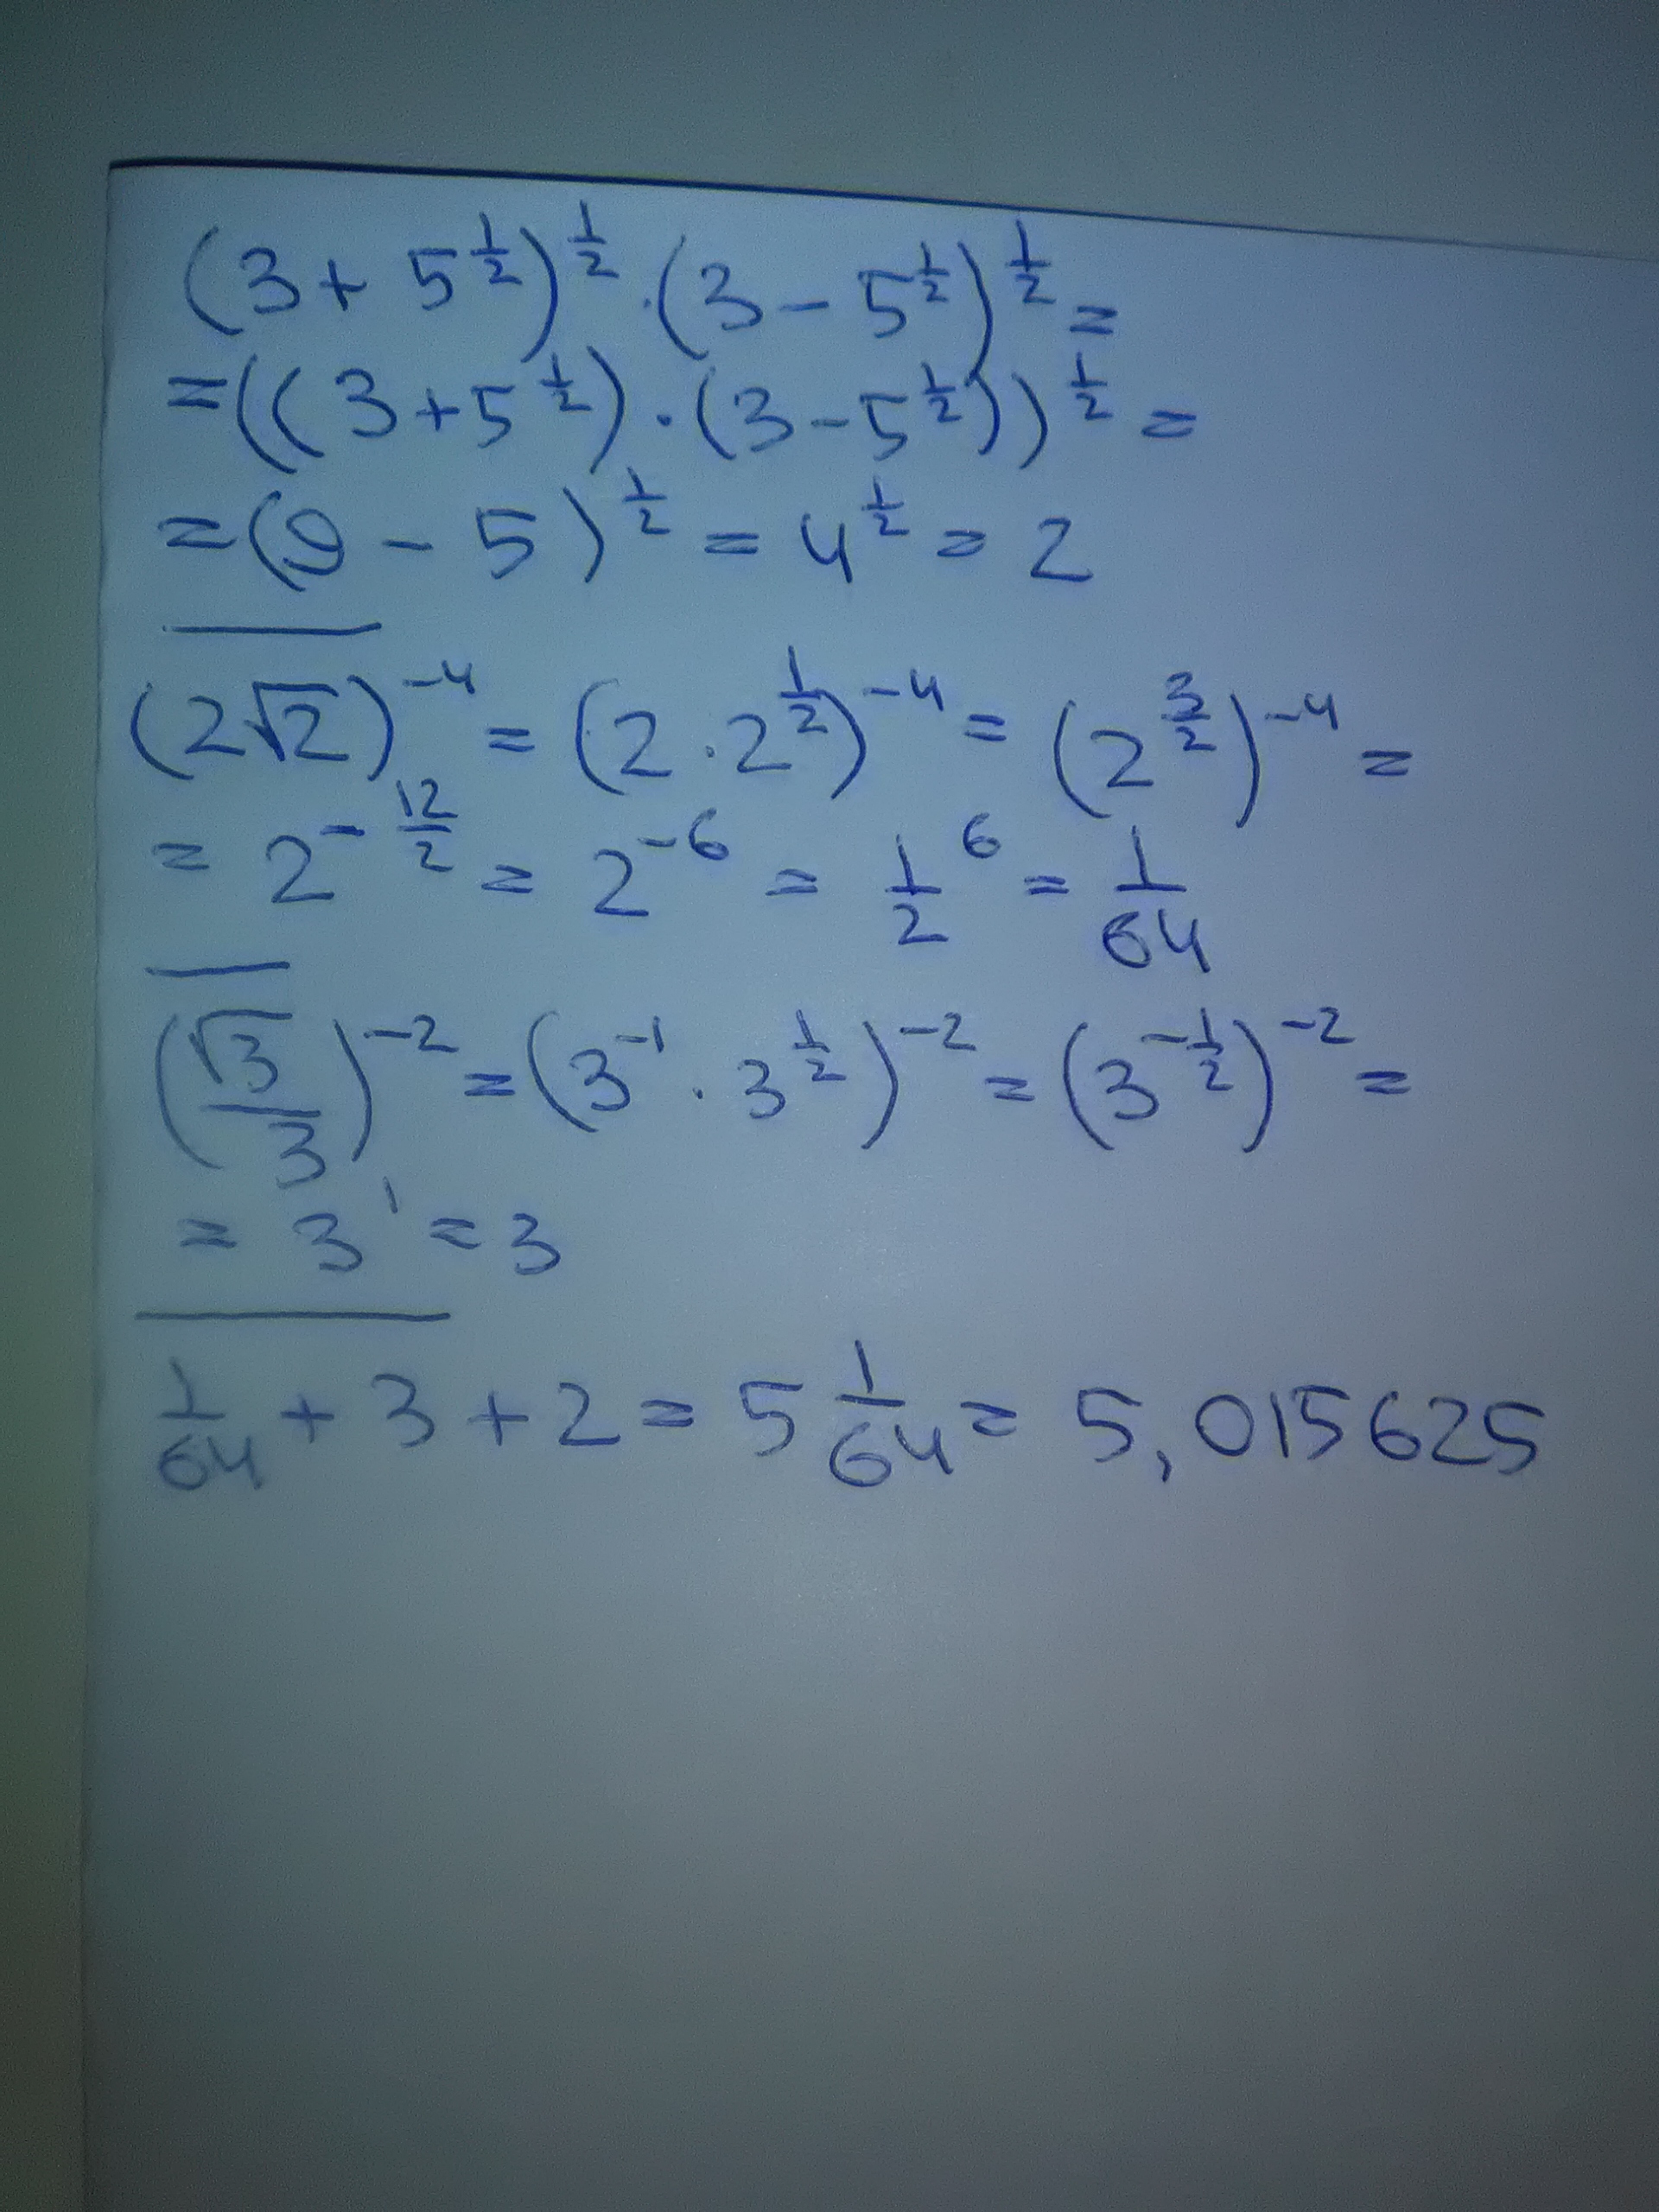 (3 + 5^{\frac{1}{2}})^{\frac{1}{2}} · (3 − 5^{\frac{1}{2}})^{\frac{1}{2}} =
= ((3 + 5^{\frac{1}{2}}) · (3 − 5^{\frac{1}{2}}))^{\frac{1}{2}} =
= (9 − 5)^{\frac{1}{2}} = 4^{\frac{1}{2}} = 2
(2√2)^{−4} = (2 · 2^{\frac{1}{2}})^{−4} = (2^{\frac{3}{2}})^{−4} =
= 2^{−\frac{12}{2}} = 2^{−6} = \frac{1}{2}^{6} = \frac{1}{64}
(\frac{√3}{3})^{−2} = (3^{−1} · 3^{\frac{1}{2}})^{−2} = (3^{−\frac{1}{2}})^{−2} =
= 3^{1} = 3
\frac{1}{64} + 3 + 2 = 5\frac{1}{64} = 5,015625